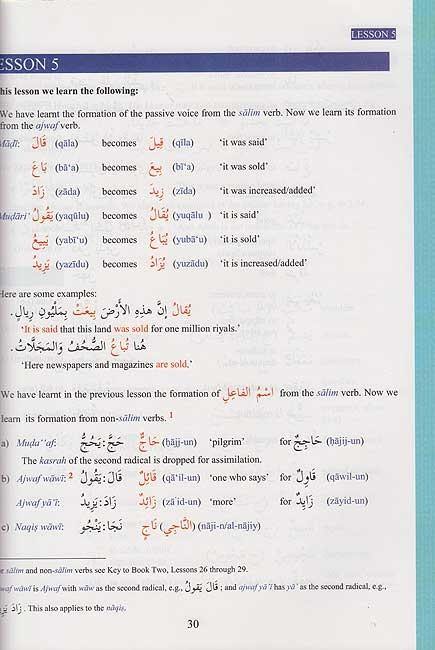 LESSON 5
ESSON 5
his lesson we learn the following:
We have learnt the formation of the passive voice from the sālim verb. Now we learn its formation
from the ajwaf verb.
Māḍī: قَالَ (qāla) becomes قِيلَ (qīla) 'it was said'
بَاعَ (bā'a) becomes بِيعَ (bī'a) 'it was sold'
زَادَ (zāda) becomes زِيدَ (zīda) 'it was increased/added'
Muḍāri' يَقُولُ (yaqūlu) becomes يُقَالُ (yuqālu ) 'it is said'
يَبِيعُ (yabī'u) becomes يُبَاعُ (yubā'u) 'it is sold'
يَزِيدُ (yazīdu) becomes يُزَادُ (yuzādu) 'it is increased/added'
Here are some examples:
يُقَالُ إنَّ هذِهِ الأَرْضَ بِيعَتْ بِمَلْيُونِ رِيالٍ.
'It is said that this land was sold for one million riyals.'
هُنا تُبَاعُ الصُّحُفُ وَالمَجَلَّاتُ.
'Here newspapers and magazines are sold.'
We have learnt in the previous lesson the formation of اسْمُ الفاعِلِ from the sālim verb. Now we
learn its formation from non-sālim verbs. 1
a) Muḍa''af: حَجَّ: يَحُجُّ حَاجٌّ (ḥājj-un) 'pilgrim' for حَاجِجٌ (ḥājij-un)
The kasrah of the second radical is dropped for assimilation.
b) Ajwaf wāwī: 2 قَالَ: يَقُولُ قَائِلٌ (qā'il-un) 'one who says' for قَاوِلٌ (qāwil-un)
Ajwaf yā'ī: زَادَ: يَزِيدُ زَائِدٌ (zā'id-un) 'more' for زَايِدٌ (zāyid-un)
c) Naqiṣ wāwī: نَجَا: يَنْجُو نَاجٍ (النَّاجِي) (nāji-n/al-nājiy)
sālim and non-sālim verbs see Key to Book Two, Lessons 26 through 29.
waf wāwī is Ajwaf with wāw as the second radical, e.g., قَالَ يَقُولُ ; and ajwaf yā'ī has yā' as the second radical, e.g.,
زَادَ يَزِيدُ . This also applies to the nāqiṣ.
30